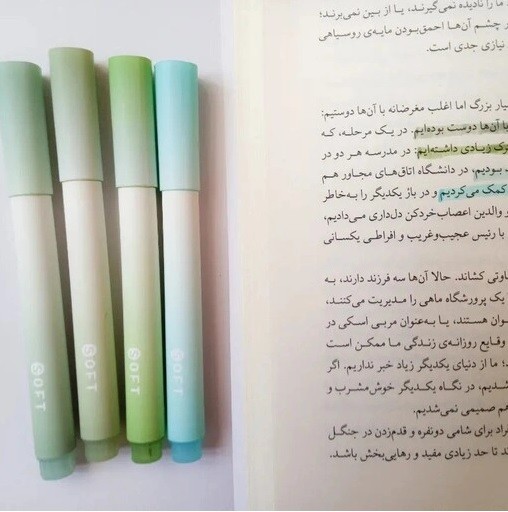 SOFT
SOFT
SOFT
SOFT
ما را نادیده نمی‌گیرند، یا از بین نمی‌برند؛
چشم آن‌ها احمق‌بودن مایه‌ی روسیاهی
نیازی جدی است.
بزرگ اما اغلب مغرضانه با آن‌ها دوستیم:
با آن‌ها دوست بوده‌ایم. در یک مرحله، که
زیادی داشته‌ایم: در مدرسه هر دو در
بودیم، در دانشگاه اتاق‌های مجاور هم
کمک می‌کردیم و در باز یکدیگر را به‌خاطر
و والدین اعصاب‌خردکن دل‌داری می‌دادیم،
با رئیس عجیب‌وغریب و افراطی یکسانی
کشاند. حالا آن‌ها سه فرزند دارند، به
یک پرورشگاه ماهی را مدیریت می‌کنند،
هستند، یا به‌عنوان مربی اسکی در
وقایع روزانه‌ی زندگی ما ممکن است
ما از دنیای یکدیگر زیاد خبر نداریم. اگر
در نگاه یکدیگر خوش‌مشرب و
هم صمیمی نمی‌شدیم.
برای شامی دونفره و قدم‌زدن در جنگل
تا حد زیادی مفید و رهایی‌بخش باشد.